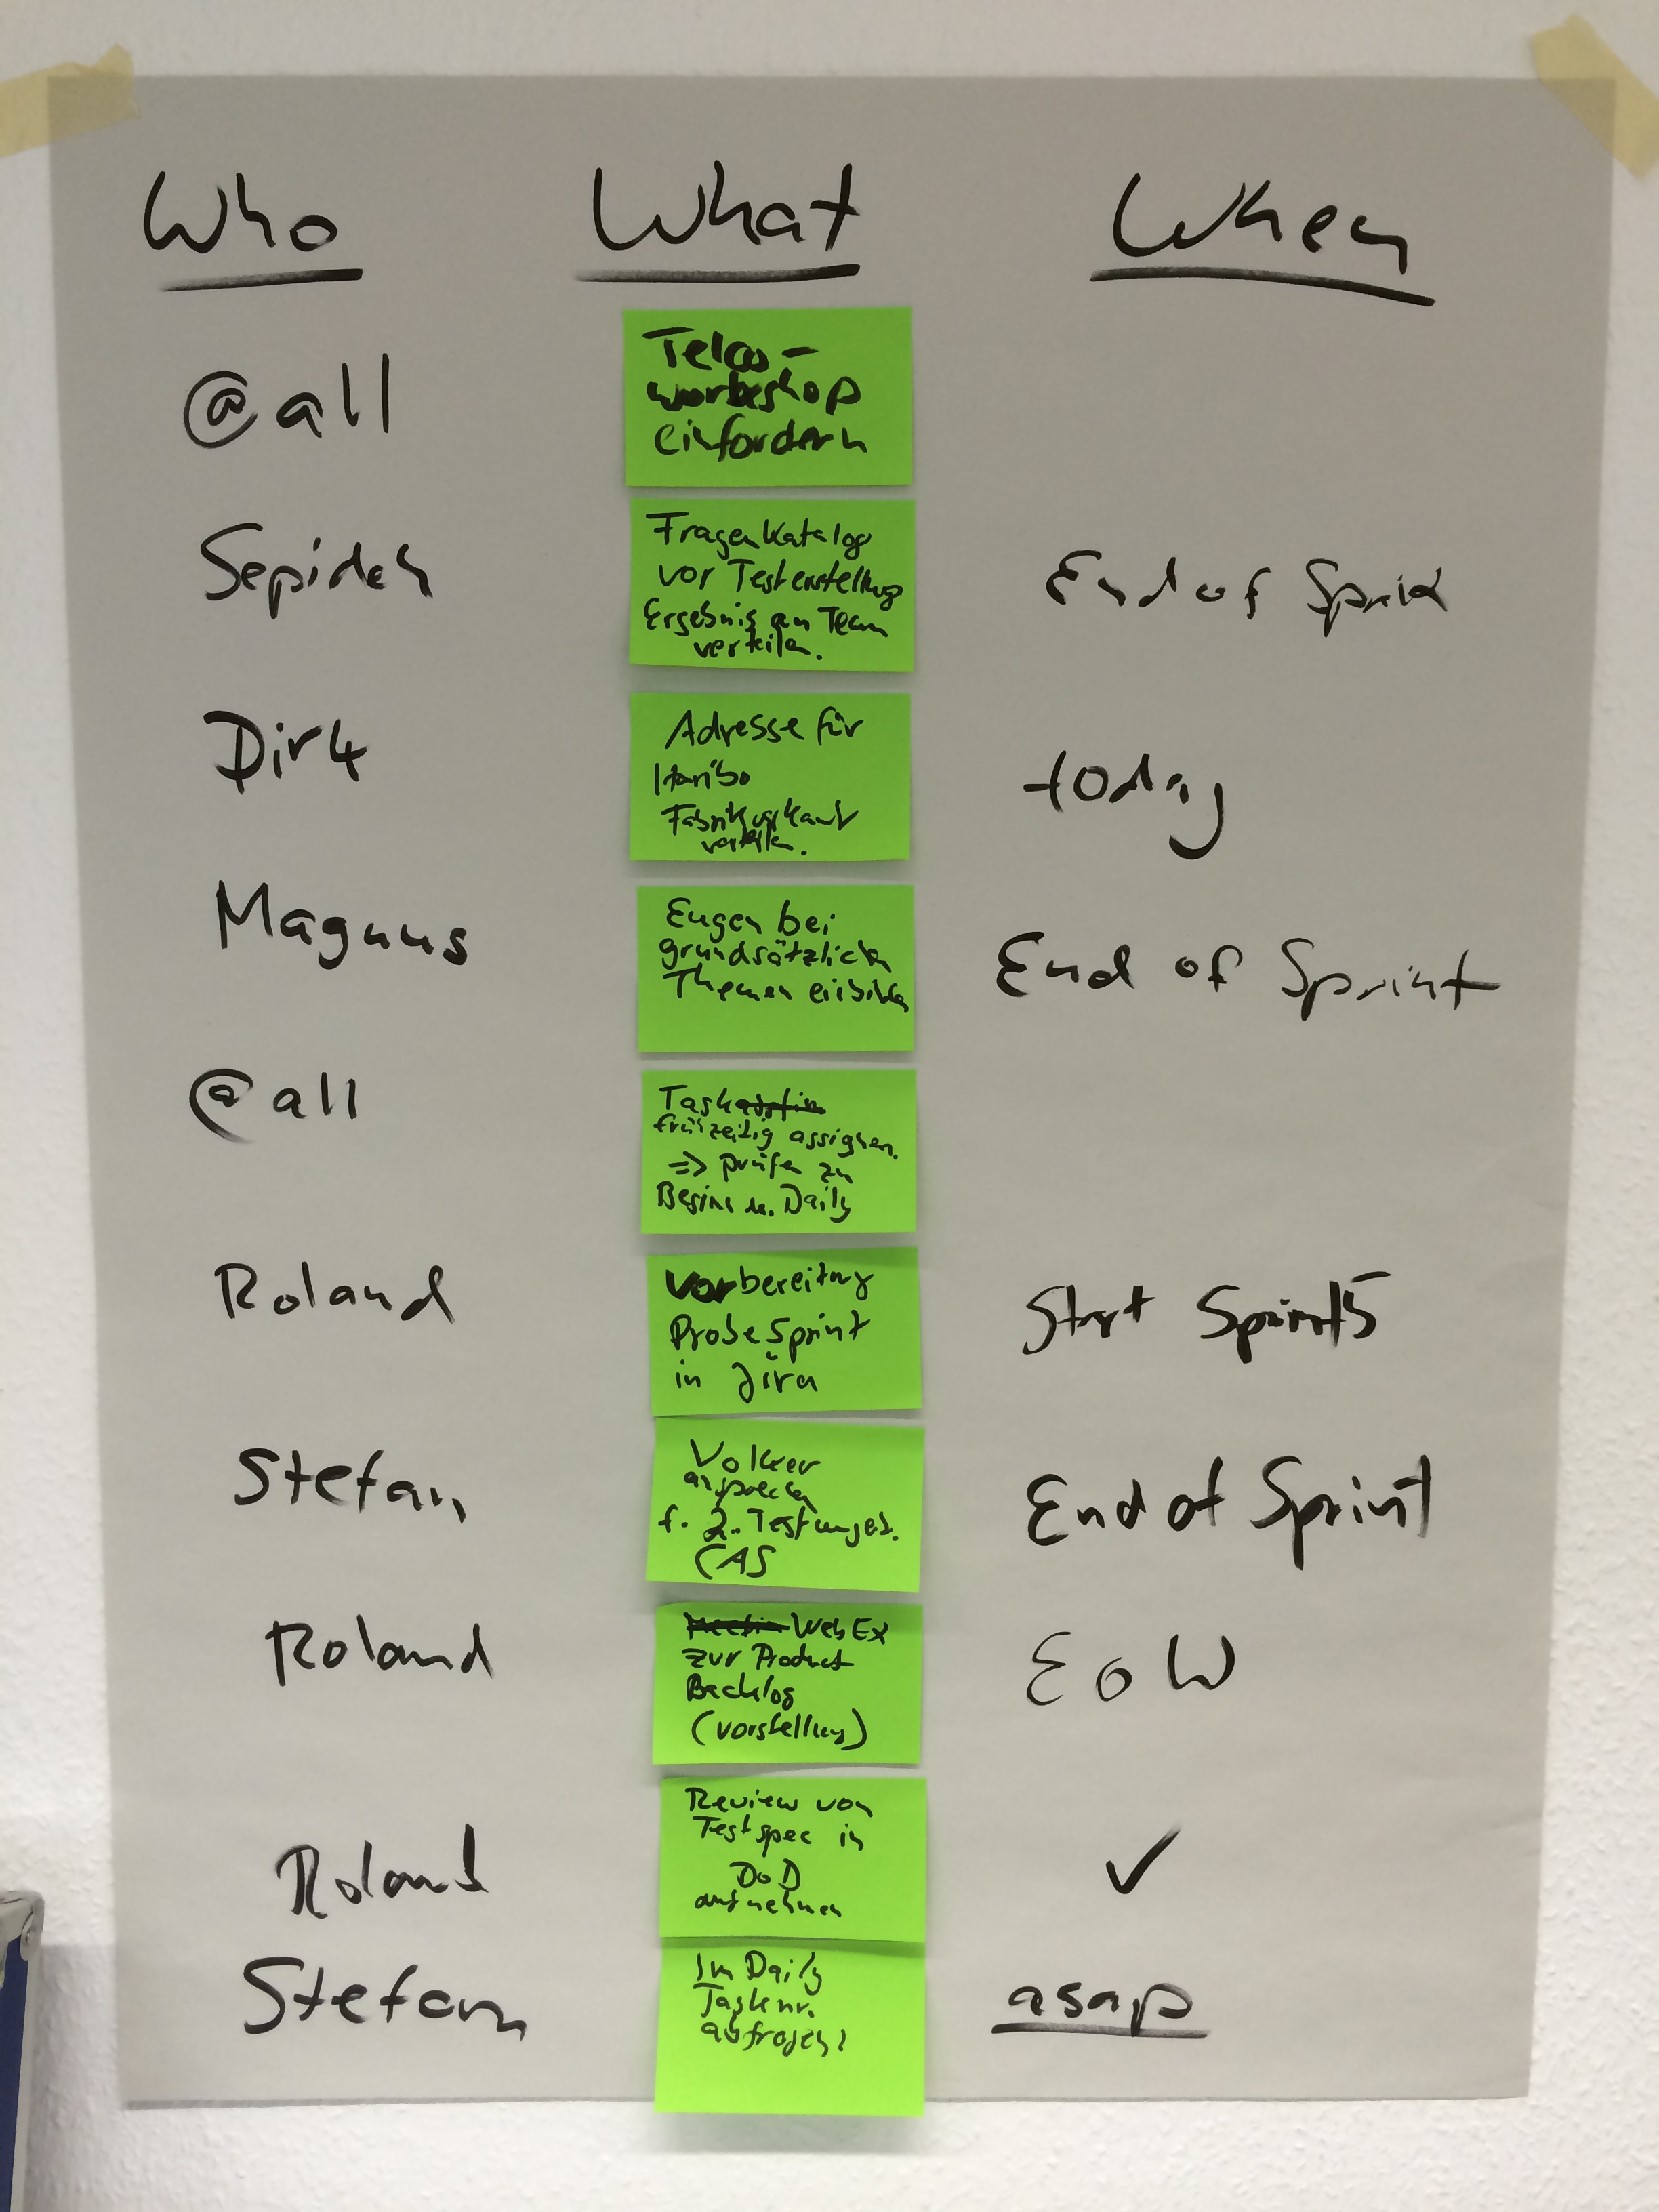 Who What When
@all
Telco-
workshop
einfordern
Sepideh
Fragenkatalog
vor Testerstellung
Ergebnis an Team
verteilen.
End of Sprint
Dirk
Adresse für
Haribo
Fabrikverkauf
verteilen.
today
Magnus
Eugen bei
grundsätzlichen
Themen einbinden
End of Sprint
@all
Task
frühzeitig assignen.
=> prüfen zu
Beginn Daily
Roland
Vorbereitung
Probe Sprint
in Jira
Start Sprint 5
Stefan
Volker
ansprechen
f. 2. Testumgeb.
CAS
End of Sprint
Roland
WebEx
zur Product
Backlog
(Vorstellung)
EoW
Roland
Review von
Testspec in
DoD
aufnehmen
✓
Stefan
Im Daily
Tasknr.
abfragen!
asap